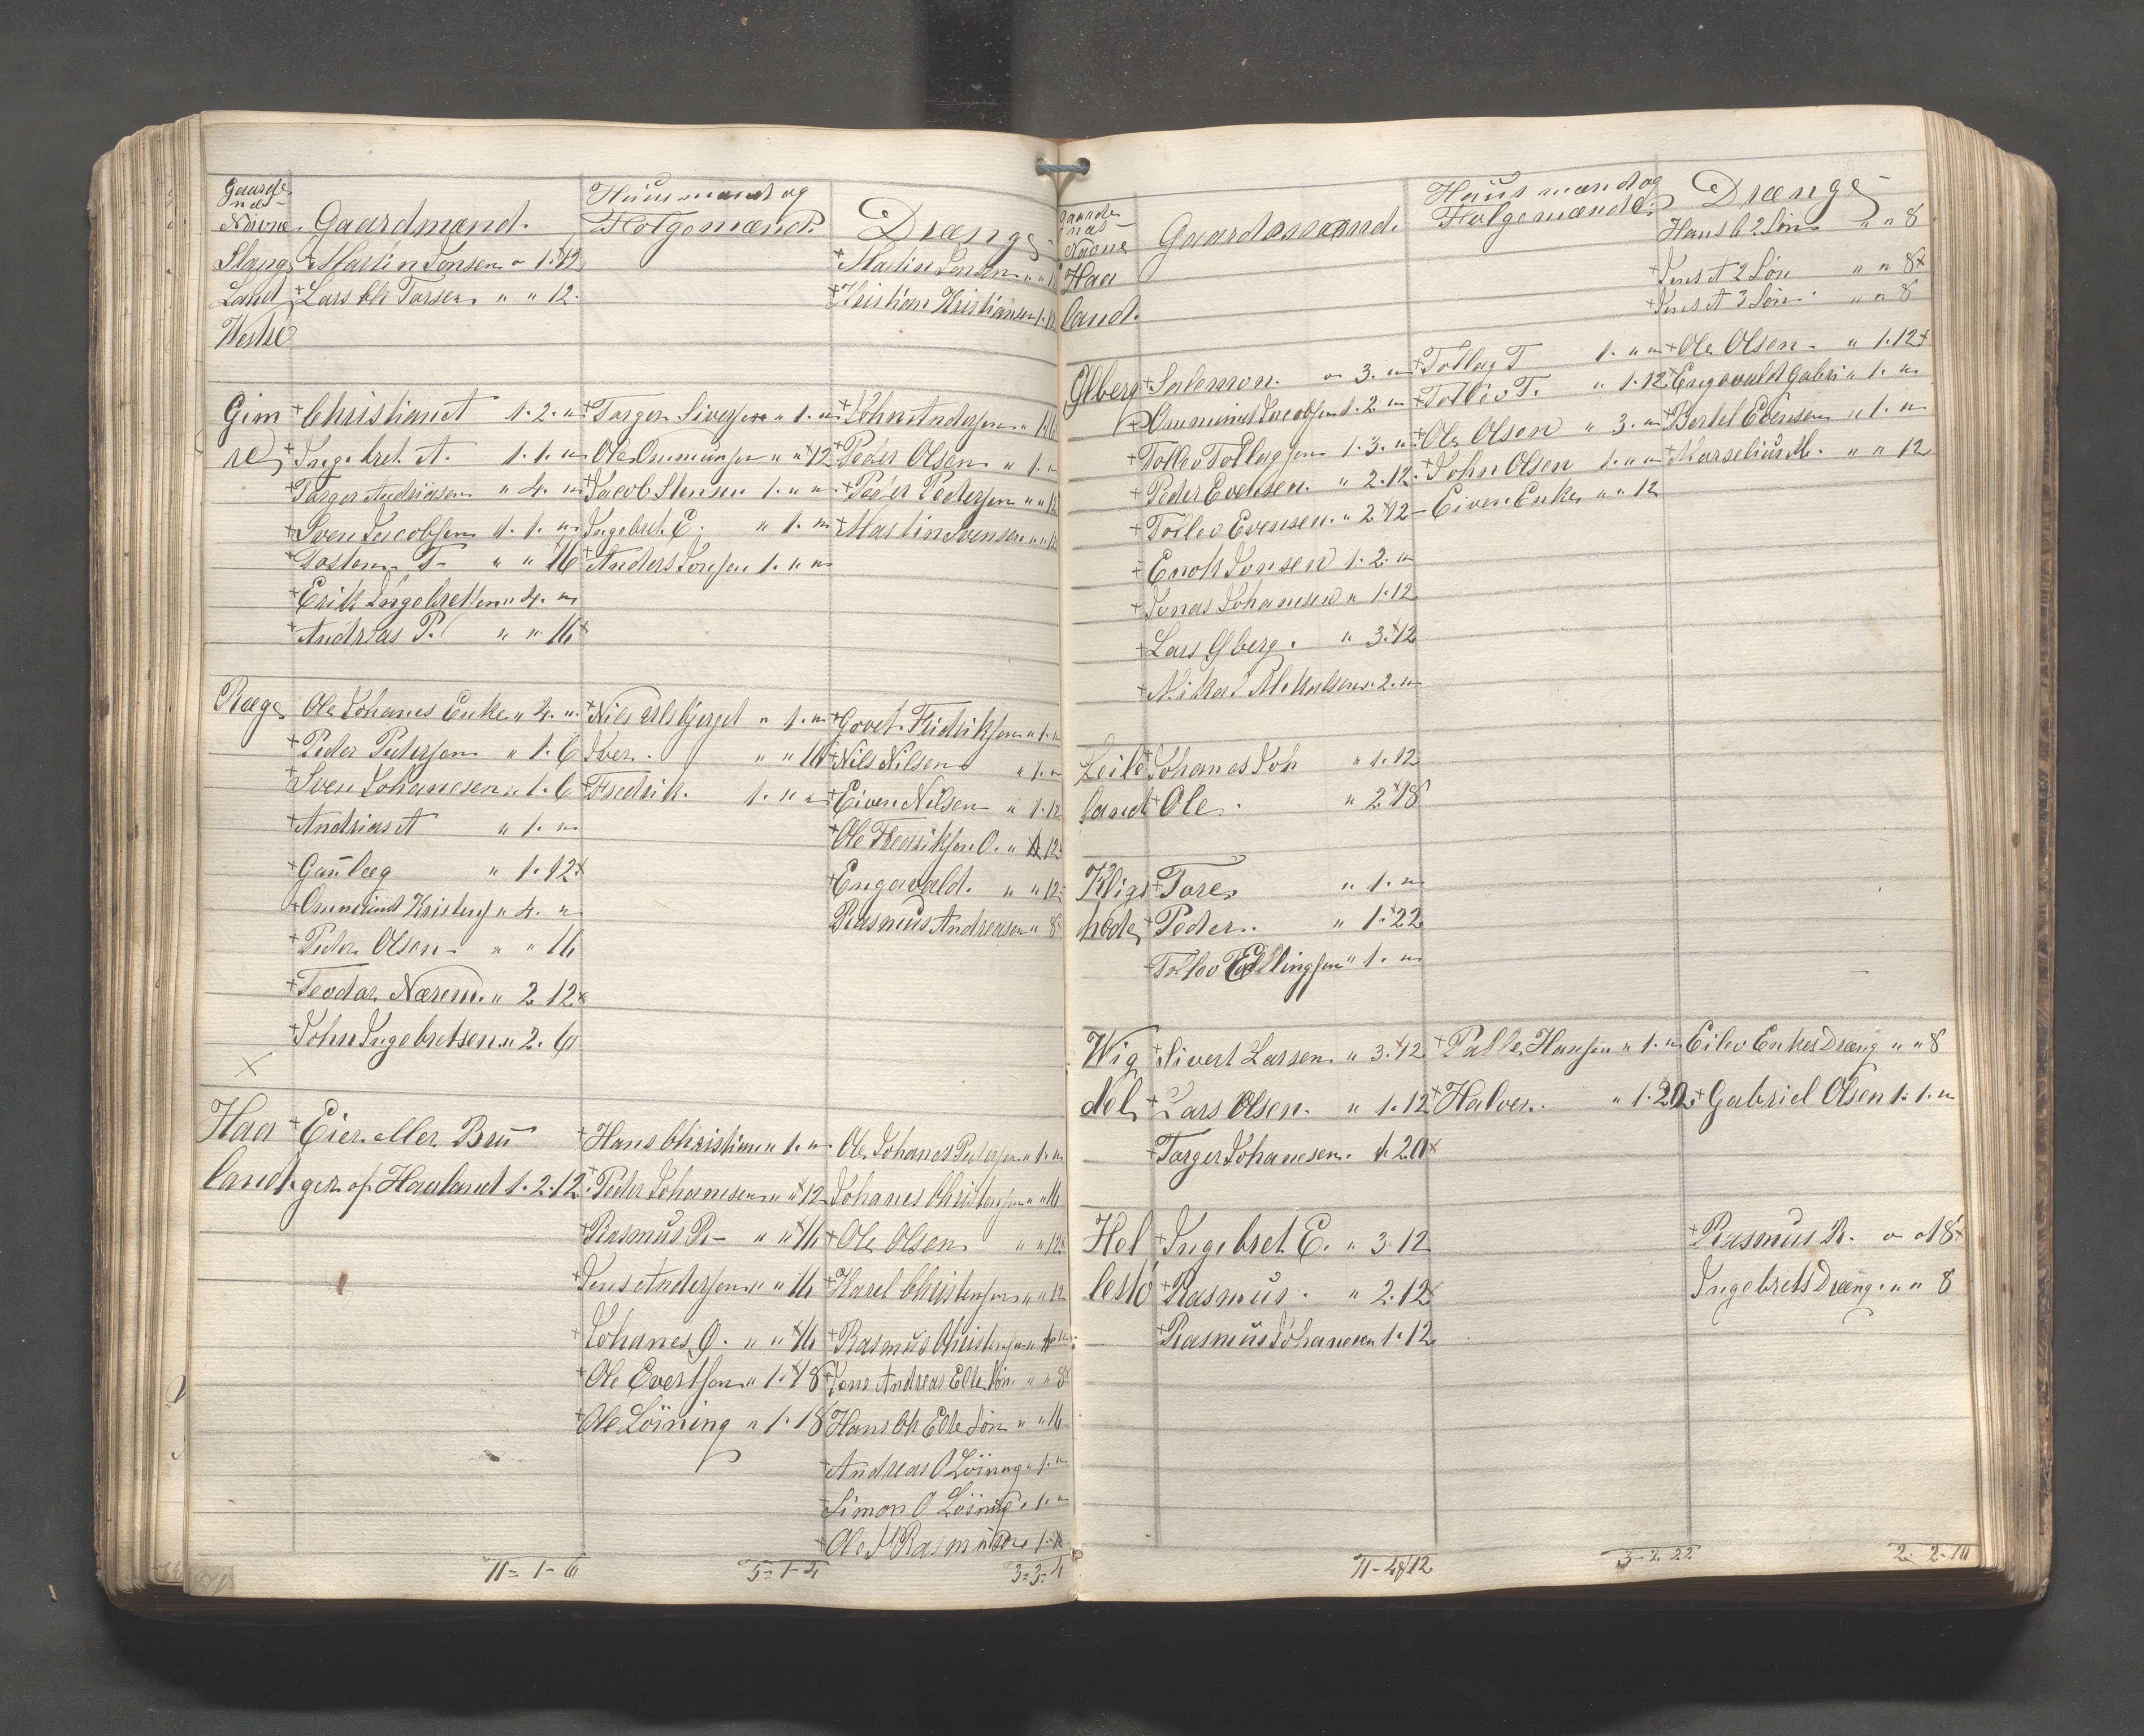 Gaarde
nas
Navne. Gaardmænd. Huusmænd og Folgemænd. Drænge
Slangs + Martin Tonsen " 1. 12 + Martin Tonsen " "
Land + Lars Ch Tarsen " " 12. + Kristian Kristiansen 1. 12
Westre
Gim + Christian A 1. 2. " + Targer Siversen " 1. " + John Andersen " 16
re + Ingebret A. 1. 1. " Ole Ommunsen " " 12 + Peder Olsen " 1. "
+ Targer Andriasen " 4. " + Jacob Stensen 1. " " + Peder Pedersen " " 12
+ Sven Jacobsen 1. 1. " Ingebret E. " 1. " + Martin Svensen " " 12
+ Tosten T. " " 16 + Anders Jonsen 1. " "
+ Erik Ingebretsen " 4. "
+ Andrias P. " " 16
Ræge Ole Johanes Enke " 4. " + Nils Ulsbjerget " 1. " + Govet Fridriksen " 1. "
+ Peder Pedersen " 1. 6 Iver. " " 16 + Nils Nilsen " 1. "
+ Sven Johanesen " 1. 6 + Fredrik. 1. " " + Eiven Nilsen " 1. 12
+ Andrias A " 1. " + Ole Fredriksen O. " 12
+ Gauleg " 1. 12 + Engevald. " " 12
+ Ommund Kristens " 4. " Rasmus Andreasen " 8
+ Peder Olsen " " 16
+ Teodor Nærem. " 2. 12
+ John Ingebretsen " 2. 6
Haa + Eier eller Bru + Hans Christian " 1. " Ole Johanes Pedersen " 1. "
land ger af Haaland 1. 2. 12 + Peder Johanesen " " 12 Johanes Christensen " " 16
+ Rasmus R " " 16 + Ole Olsen " " 12
+ Jens Andersen " " 16 + Karel Christensen " " 12
+ Johanes O. " " 16 + Rasmus Christensen "
+ Ole Evertsen " 1. 18 + Jens Andreas Elte Søn " " 8
+ Ole Löining " 1. 18 Hans Ch Elte Søn " " 16
+ Andreas O Löining " 1. "
+ Simon O Löining " 1. "
+ Ole Rasmusen 1.
11 = 1 - 6 5 = 1 - 4 3 = 3 = 4
Gaarde
nas
Navne Gaardmænd. Huusmænd og Folgemænd. Drænge
Haa Hans C 2 Søn " " 8
land. + Jens A 2 Søn " " 8
+ Jens A 3 Søn " " 8
Glberg + Salemon. " 3. " + Tollag T 1. " " + Ole Olsen " 1. 12
+ Ommund Jacobsen 1. 2. " + Tollev T. " 1. 12 + Engevald Gabri " 1. "
+ Tollev Tollagsen 1. 3. " + Ole Olsen " 3. " + Bertel Evensen " 1. "
+ Peder Evensen. " 2. 12 + John Olsen 1. " " + Marselius M. " " 12
+ Tollev Evensen. " 2. 12 Eiven Enke " " 12
+ Enok Jonsen 1. 2. "
+ Jonas Johanesen " 1. 12
+ Lars Glberg. " 3. 12
+ Mikal Mikalsen 2. "
Leile + Johanes Joh " 1. 12
land + Ole. " 2. 18
Kligs + Tore " 1. "
hode + Peder. " 1. 22
+ Tollev Edlingsen " 1. "
Wig + Sivert Larsen " 3. 12 + Palle Hansen " 1. " Eilev Enkes Dræng " " 8
del + Lars Olsen. " 1. 12 + Halver. " 1. 20 + Gabriel Olsen 1. 1. "
+ Targer Johanesen. 1. 20
Hel + Ingebret E. " 3. 12 + Rasmus R. " " 18
lestö + Rasmus. " 2. 12 Ingebrets Dræng. " " 8
+ Rasmus Johanesen 1. 12
11 - 4 - 12 3 - 2 22 2. 2 - 10